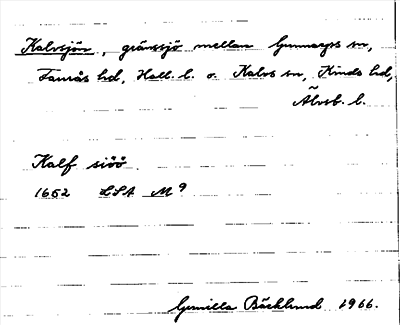 Kalvsjön, gränssjö mellan Gunnarps sn,
Faurås hd, Hall. l. o. Kalvs sn, Kinds hd,
Älvsb. l.
Kalf siöö
1652 LSA M 9
Gunilla Bäcklund 1966.